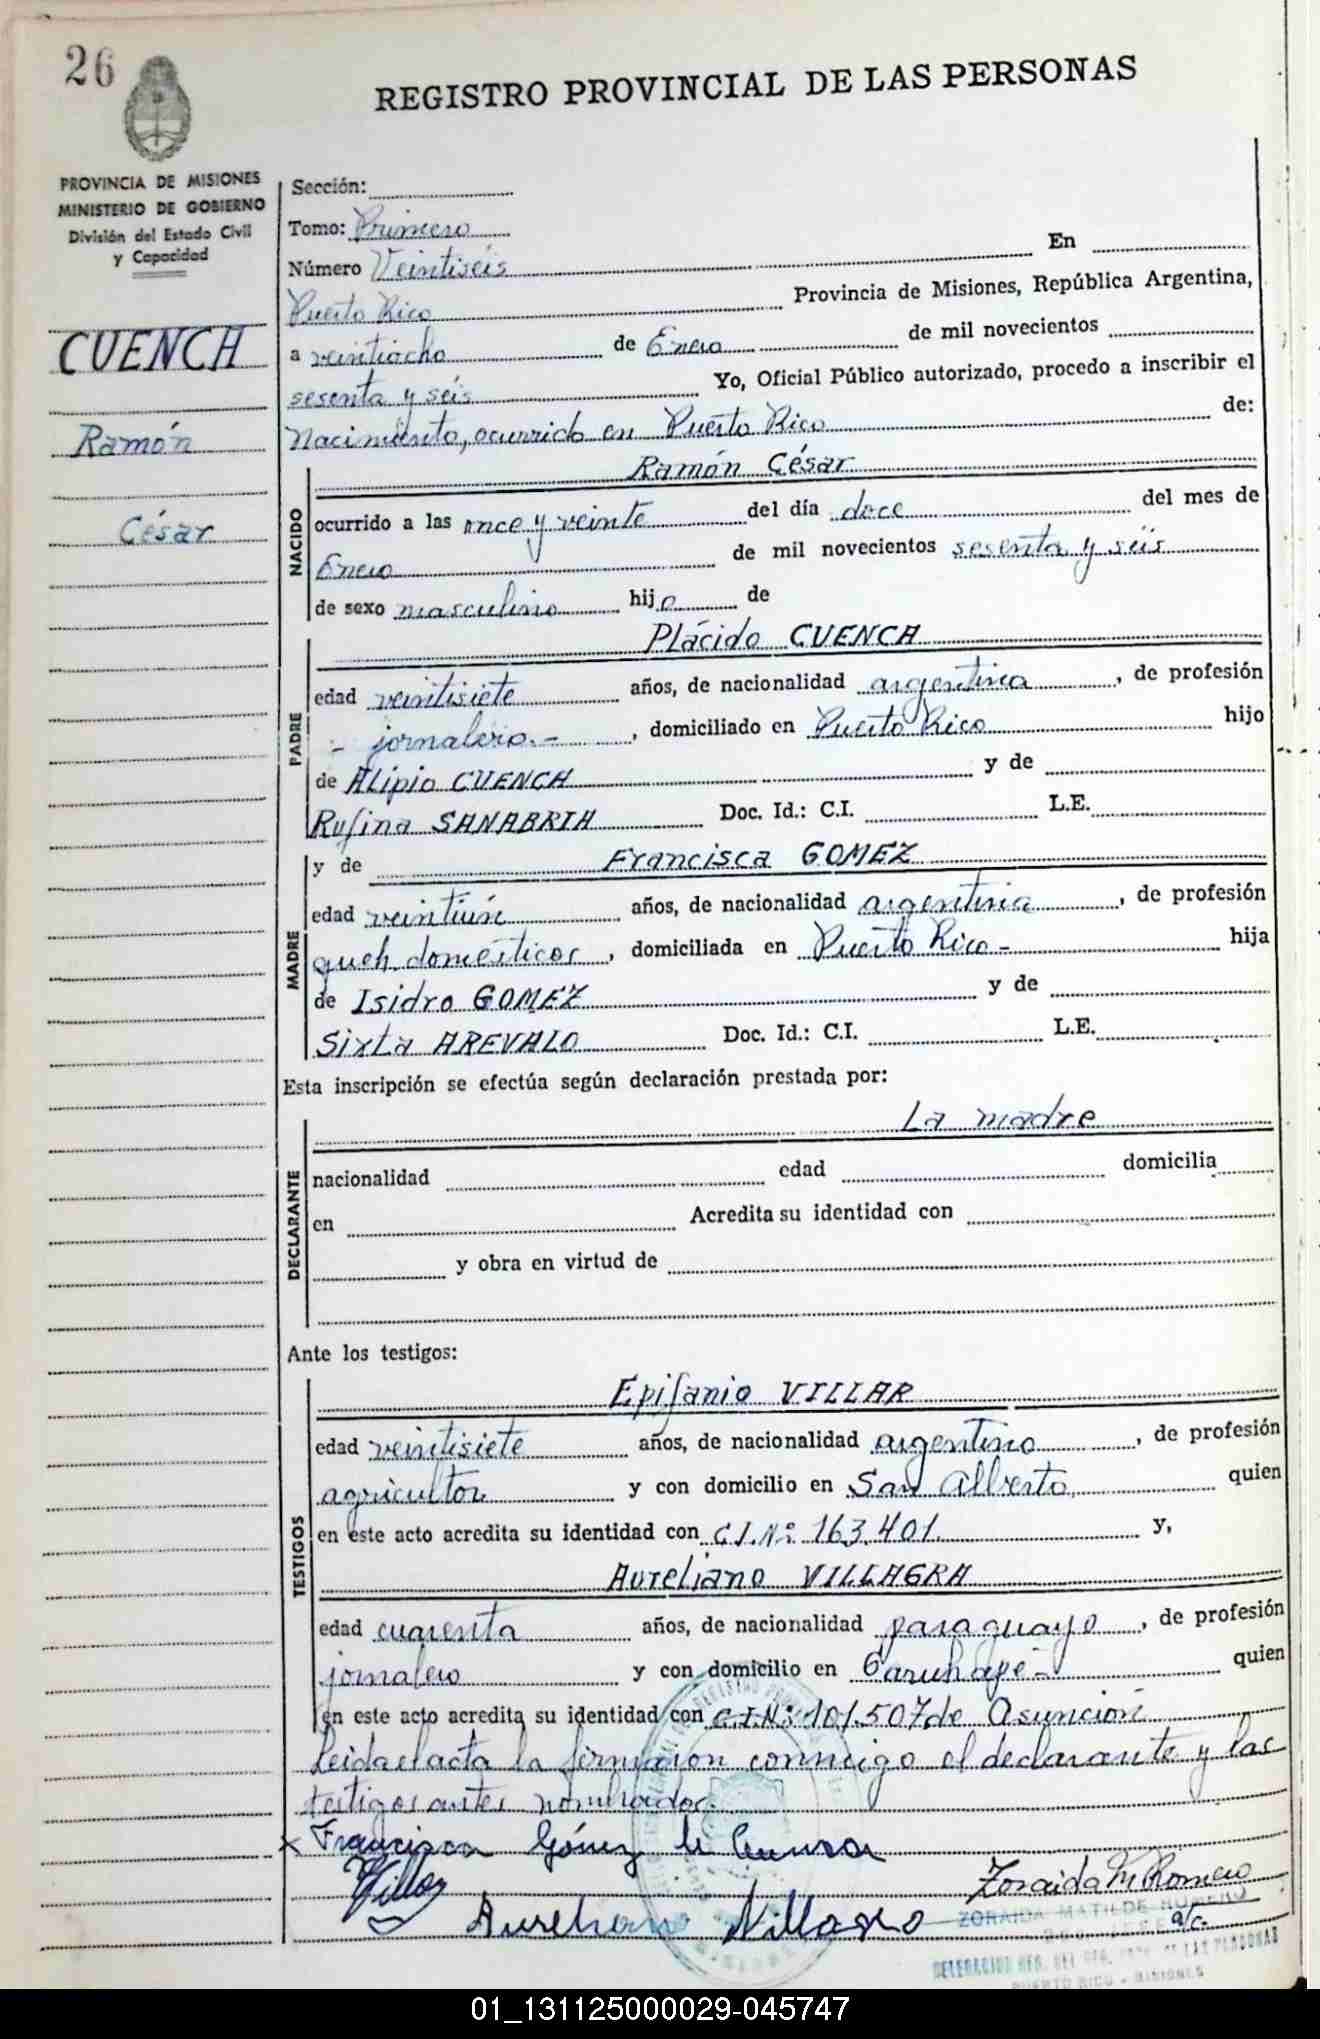 26
REGISTRO PROVINCIAL DE LAS PERSONAS
PROVINCIA DE MISIONES
MINISTERIO DE GOBIERNO
División del Estado Civil
y Capacidad
CUENCA
Ramón
César
Sección:
Tomo: Primero
Número Veintiséis En
Puerto Rico Provincia de Misiones, República Argentina,
a veintiocho de Enero de mil novecientos
sesenta y seis Yo, Oficial Público autorizado, procedo a inscribir el
Nacimiento, ocurrido en Puerto Rico de:
NACIDO
Ramón César
ocurrido a las once y veinte del día doce del mes de
Enero de mil novecientos sesenta y seis
de sexo masculino hijo de
PADRE
Plácido CUENCA
edad veintisiete años, de nacionalidad argentina, de profesión
- jornalero.-, domiciliado en Puerto Rico hijo
de Alipio CUENCA y de
Rufina SANABRIA Doc. Id.: C.I. L.E.
MADRE
y de Francisca GOMEZ
edad veintiún años, de nacionalidad argentina, de profesión
queh. domésticos, domiciliada en Puerto Rico- hija
de Isidro GOMEZ y de
Sixta AREVALO Doc. Id.: C.I. L.E.
Esta inscripción se efectúa según declaración prestada por:
DECLARANTE
La madre
nacionalidad edad domicilia
en Acredita su identidad con
y obra en virtud de
Ante los testigos:
TESTIGOS
Epifanio VILLAR
edad veintisiete años, de nacionalidad argentino, de profesión
agricultor y con domicilio en San Alberto, quien
en este acto acredita su identidad con C.I.Nº 163.401. y,
Aureliano VILLAGRA
edad cuarenta años, de nacionalidad paraguayo, de profesión
jornalero y con domicilio en Garuhapé- quien
en este acto acredita su identidad con C.I.Nº 101.507 de Asunción
Leida el acta la firmaron conmigo el declarante y los
testigos antes nombrados.
x Francisca Gómez de Cuenca
Villar
Zoraida M Romero
Aureliano Villagra
ZORAIDA MATILDE ROMERO
a/c.
PUERTO RICO - MISIONES
01_131125000029-045747